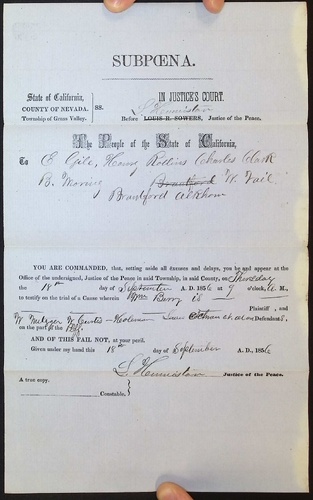 SUBPŒNA.
State of California,
COUNTY OF NEVADA.
Township of Grass Valley.
SS.
IN JUSTICE'S COURT.
Before LOUIS R. SOWERS, Justice of the Peace.
The People of the State of California,
To E. Gile, Henry Rollins Charles Clark
B. Brantford W. Vail
Brantford
YOU ARE COMMANDED, that, setting aside all excuses and delays, you be and appear at the
Office of the undersigned, Justice of the Peace in said Township, in said County, on Thursday
the 18th day of September A. D. 1856 at 9 o'clock, A. M.,
to testify on the trial of a Cause wherein Berry is
Plaintiff, and
W Metzger W. Curtis Defendants,
on the part of the Plff.
AND OF THIS FAIL NOT, at your peril.
Given under my hand this 18th day of September A. D., 1856
Justice of the Peace.
A true copy.
Constable.